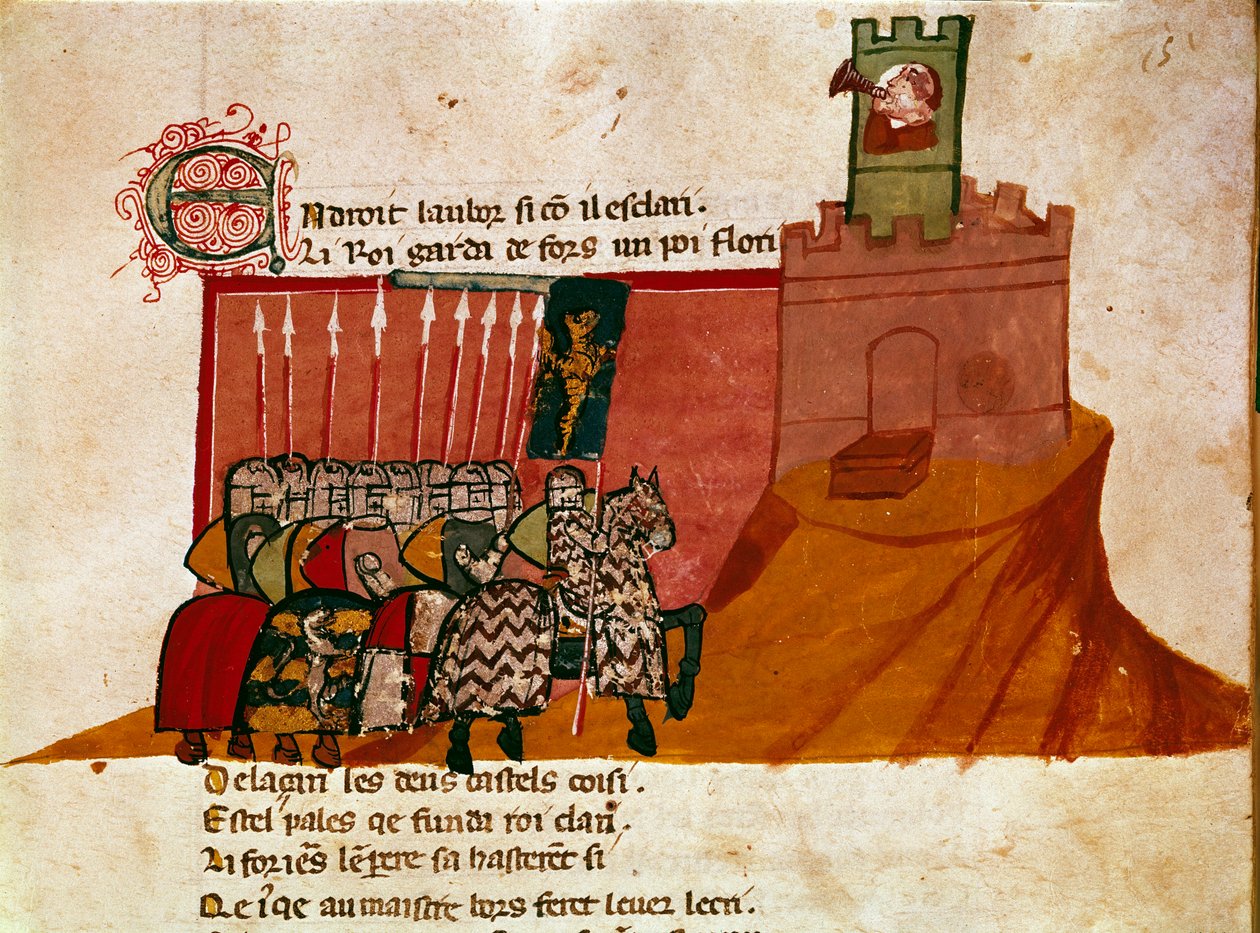 Endroit laubor si cō il esclari.
Li Roi garda de fors un poi flori
De lagin les deus castels coisi.
Estel pales qe funda roi clari.
Li foriēs lēpere sa hasterēt si
Qe iqe au maistre bors feret lever lecri.